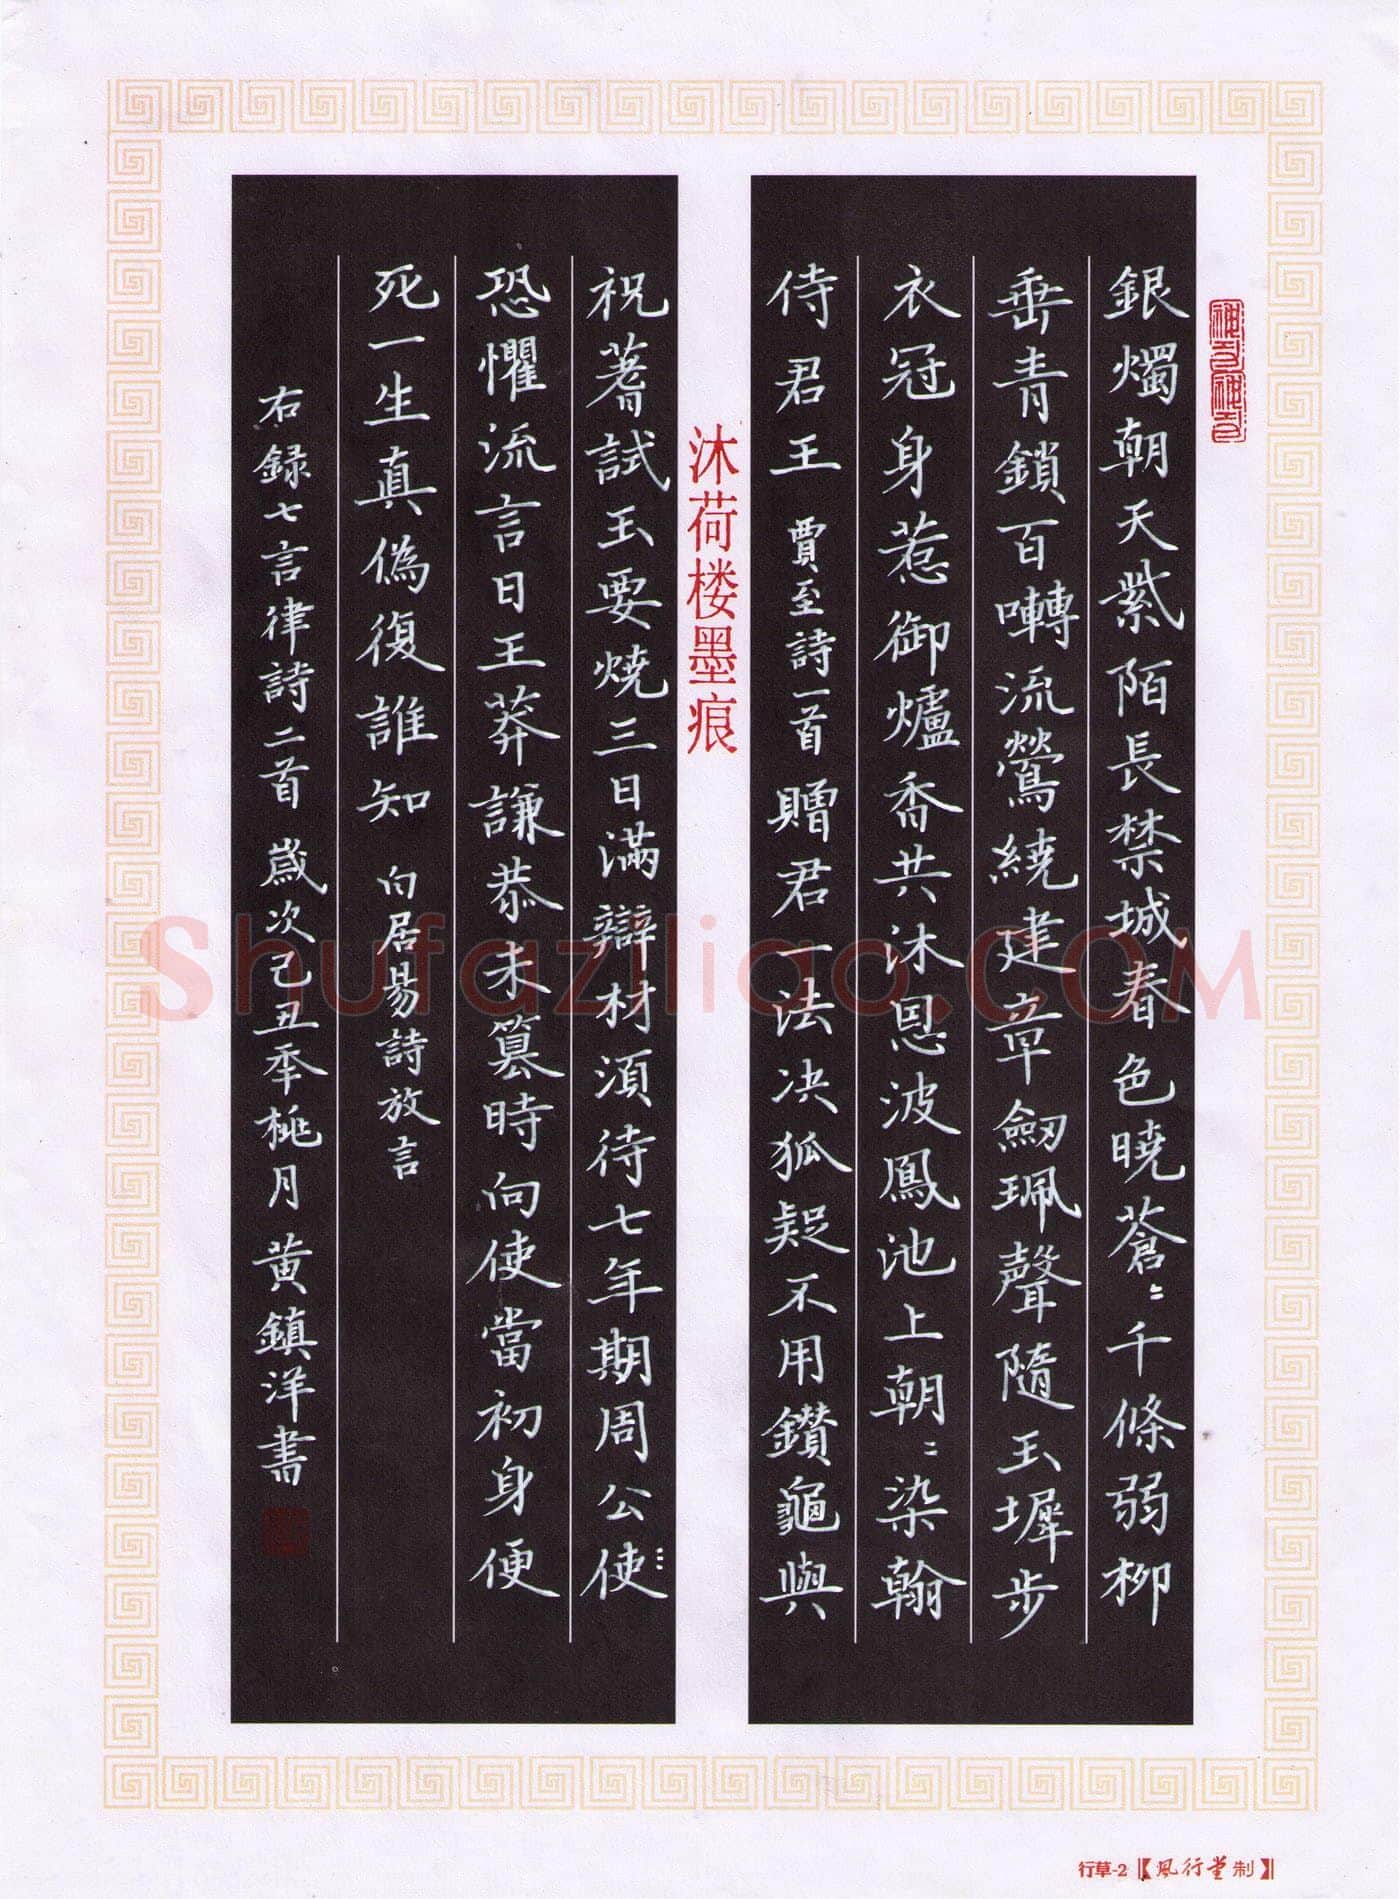 銀燭朝天紫陌長禁城春色曉蒼〻千條弱柳
垂青鎖百囀流鶯繞建章劒珮聲隨玉墀步
衣冠身惹御爐香共沐恩波鳳池上朝〻染翰
侍君王 賈至詩一首 贈君一法决狐疑不用鑽龜與
沐荷楼墨痕
祝蓍試玉要燒三日滿辯材須待七年期周公使
恐懼流言日王莽謙恭未篡時向使當初身便
死一生真偽復誰知 白居易詩放言
右録七言律詩二首 歲次己丑年桃月 黃鎮洋書
Shufaziliao.COM
行草-2【風行堂制】